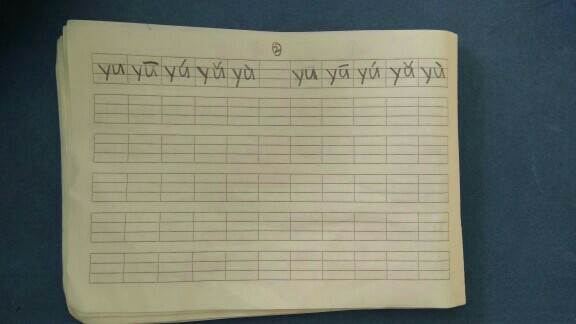 ②
yu yū yú yǔ yù yu yū yú yǔ yù